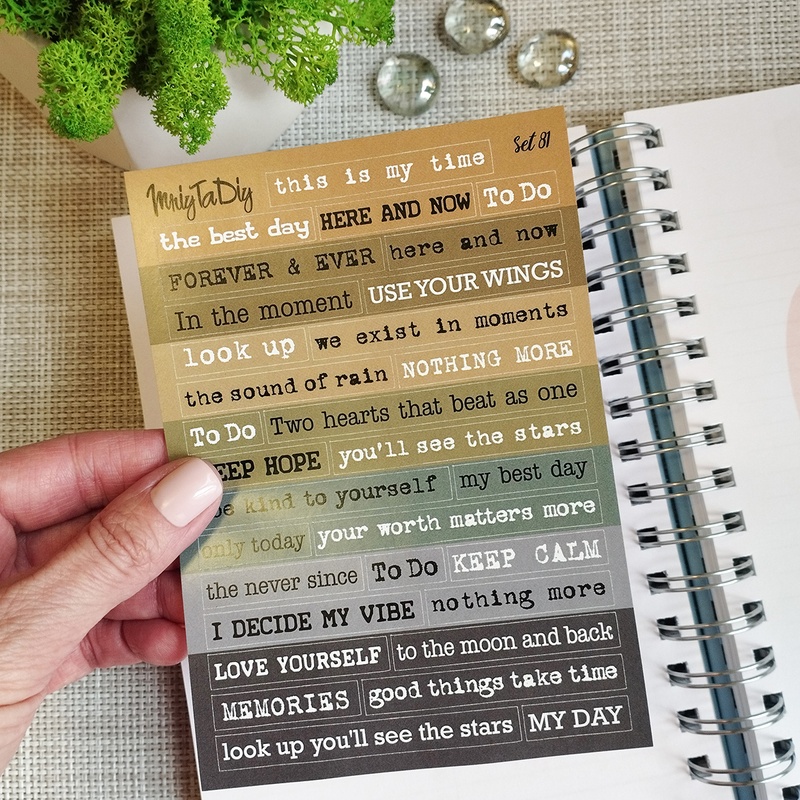 Set 81
MriyTaDiy this is my time
the best day HERE AND NOW To Do
FOREVER & EVER here and now
In the moment USE YOUR WINGS
look up we exist in moments
the sound of rain NOTHING MORE
To Do Two hearts that beat as one
EEP HOPE you'll see the stars
be kind to yourself my best day
only today your worth matters more
the never since To Do KEEP CALM
I DECIDE MY VIBE nothing more
LOVE YOURSELF to the moon and back
MEMORIES good things take time
look up you'll see the stars MY DAY